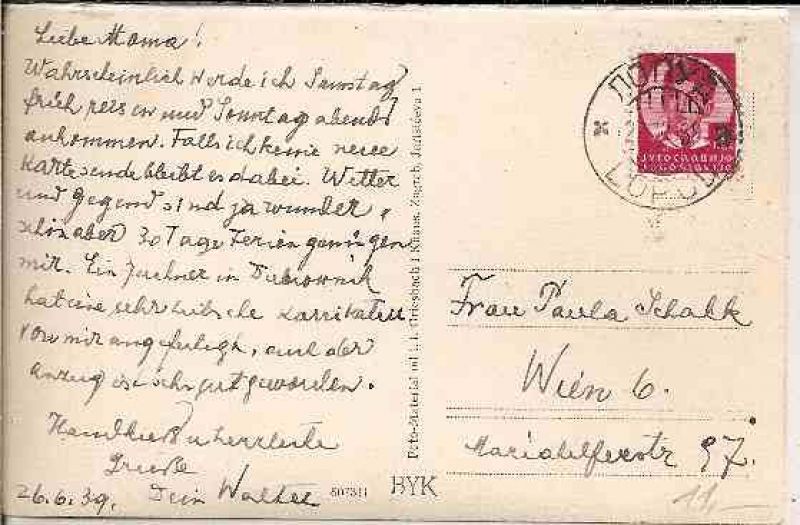 Liebe Mama!
Wahrscheinlich werde ich Samstag
früh reisen und Sonntag abends
ankommen. Falls ich keine neue
Karte sende bleibt es dabei. Wetter
und Gegend sind ja wunder-
schön aber 30 Tage Ferien genügen
mir. Ein Zeichner in Dubrownik
hat eine sehr hübsche Karrikatur
von mir angefertigt, auch der
Anzug ist sehr gut geworden.
Handkuß u herzlichste
Grüße
26.6.39. Dein Walter
Foto-Material od Griesbach i Knaus, Zagreb, Jurisićeva 1
807311 BYK
ЈУГОСЛАВИЈА
JUGOSLAVIJA
Frau Paula Schalk
Wien 6.
Mariahilferstr 97.
11,-